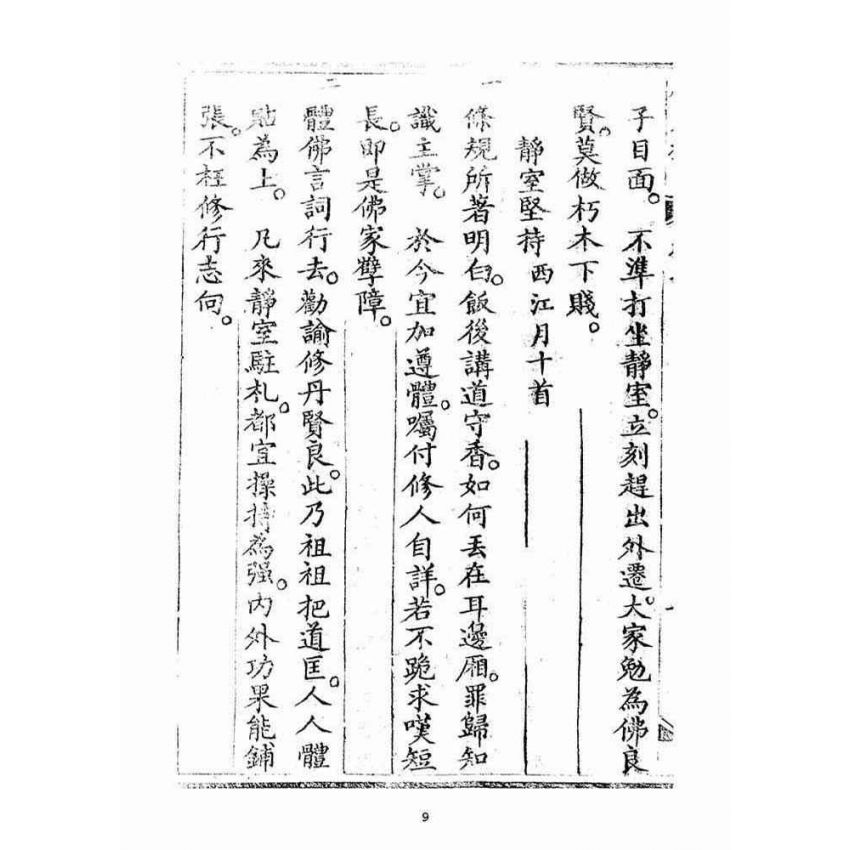 子目面。不準打坐靜室。立刻趕出外遷。大家勉為佛良
賢。莫做朽木下賤。
靜室堅持西江月十首
條規所著明白。飯後講道守香。如何丟在耳邊廂。罪歸知
識主掌。於今宜加遵體。囑付修人自詳。若不跪求嘆短
長。即是佛家孽障。
一
體佛言詞行去。勸諭修丹賢良。此乃祖祖把道匡。人人體
點為上。凡來靜室駐札。都宜操持為强。內外功果能鋪
張。不枉修行志向。
二
9